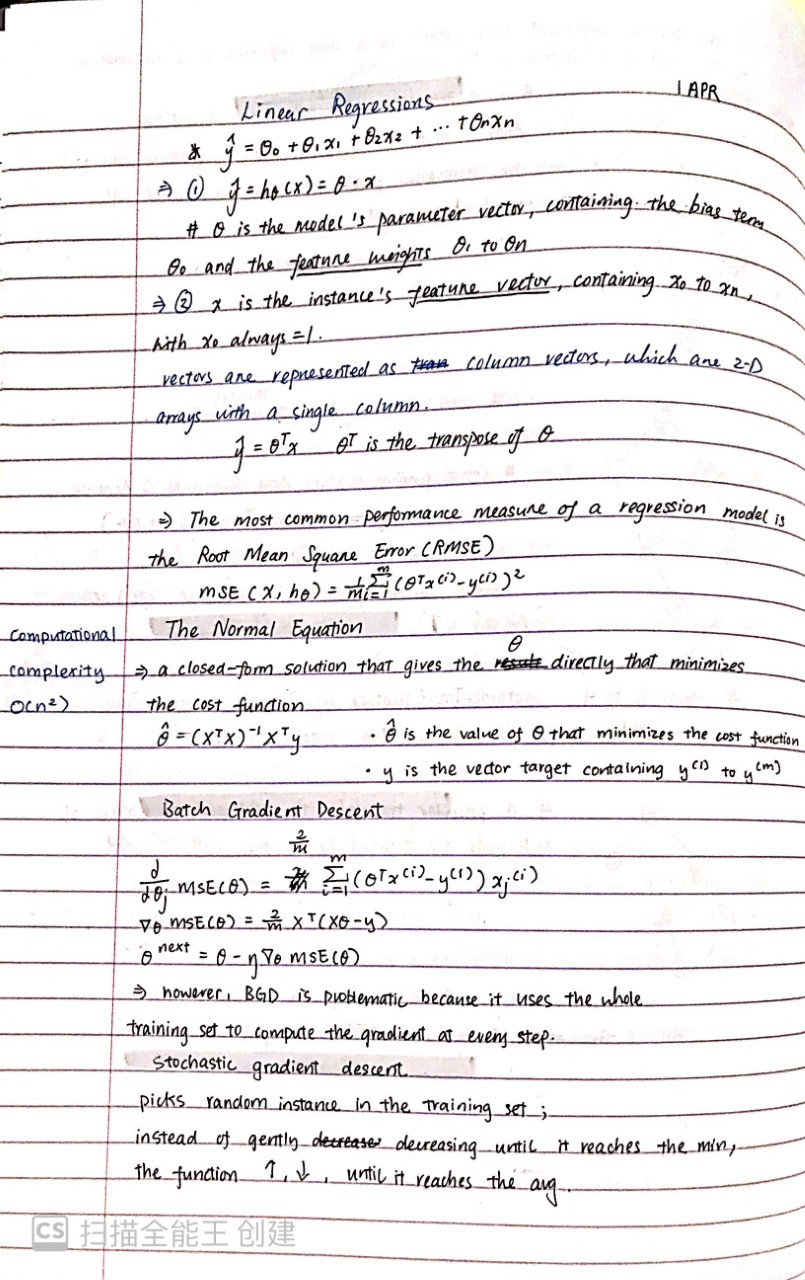 1 APR
Linear Regressions
* ŷ = θ₀ + θ₁x₁ + θ₂x₂ + ... + θnxn
⇒ ① ŷ = hθ(x) = θ · x
# θ is the model's parameter vector, containing the bias term
θ₀ and the feature weights θ₁ to θn
⇒ ② x is the instance's feature vector, containing x₀ to xn,
with x₀ always = 1.
vectors are represented as tran column vectors, which are 2-D
arrays with a single column.
ŷ = θᵀx θᵀ is the transpose of θ
⇒ The most common performance measure of a regression model is
the Root Mean Square Error (RMSE)
MSE (X, hθ) = 1/m Σ_{i=1}^{m} (θᵀx⁽ⁱ⁾ - y⁽ⁱ⁾)²
The Normal Equation
Computational
complexity
O(n²)
⇒ a closed-form solution that gives the result θ directly that minimizes
the cost function
θ̂ = (XᵀX)⁻¹Xᵀy · θ̂ is the value of θ that minimizes the cost function
· y is the vector target containing y⁽¹⁾ to y⁽ᵐ⁾
Batch Gradient Descent
d/dθj MSE(θ) = 2/m Σ_{i=1}^{m} (θᵀx⁽ⁱ⁾ - y⁽ⁱ⁾) xj⁽ⁱ⁾
∇θ MSE(θ) = 2/m Xᵀ(Xθ - y)
θ^next = θ - η∇θ MSE(θ)
⇒ however, BGD is problematic because it uses the whole
training set to compute the gradient at every step.
Stochastic gradient descent
picks random instance in the training set ;
instead of gently decrease decreasing until it reaches the min,
the function ↑, ↓, until it reaches the avg.
CS 扫描全能王 创建